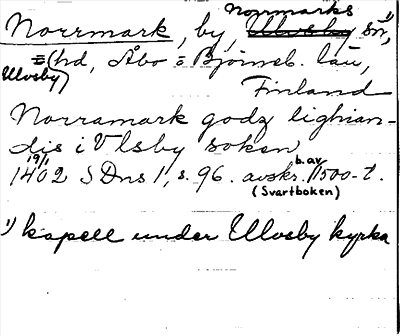 Norrmarks
Norrmark, by, Ulvsby sn, 1)
(hd, Åbo o Björneb. län,
Ulvsby)
Finland
Norramark godz lighian-
dis i Vlsby soken
19/1 b. av
1402 SDns 1, s. 96. avskr. 1500-t.
(Svartboken)
1) kapell under Ulvsby kyrka